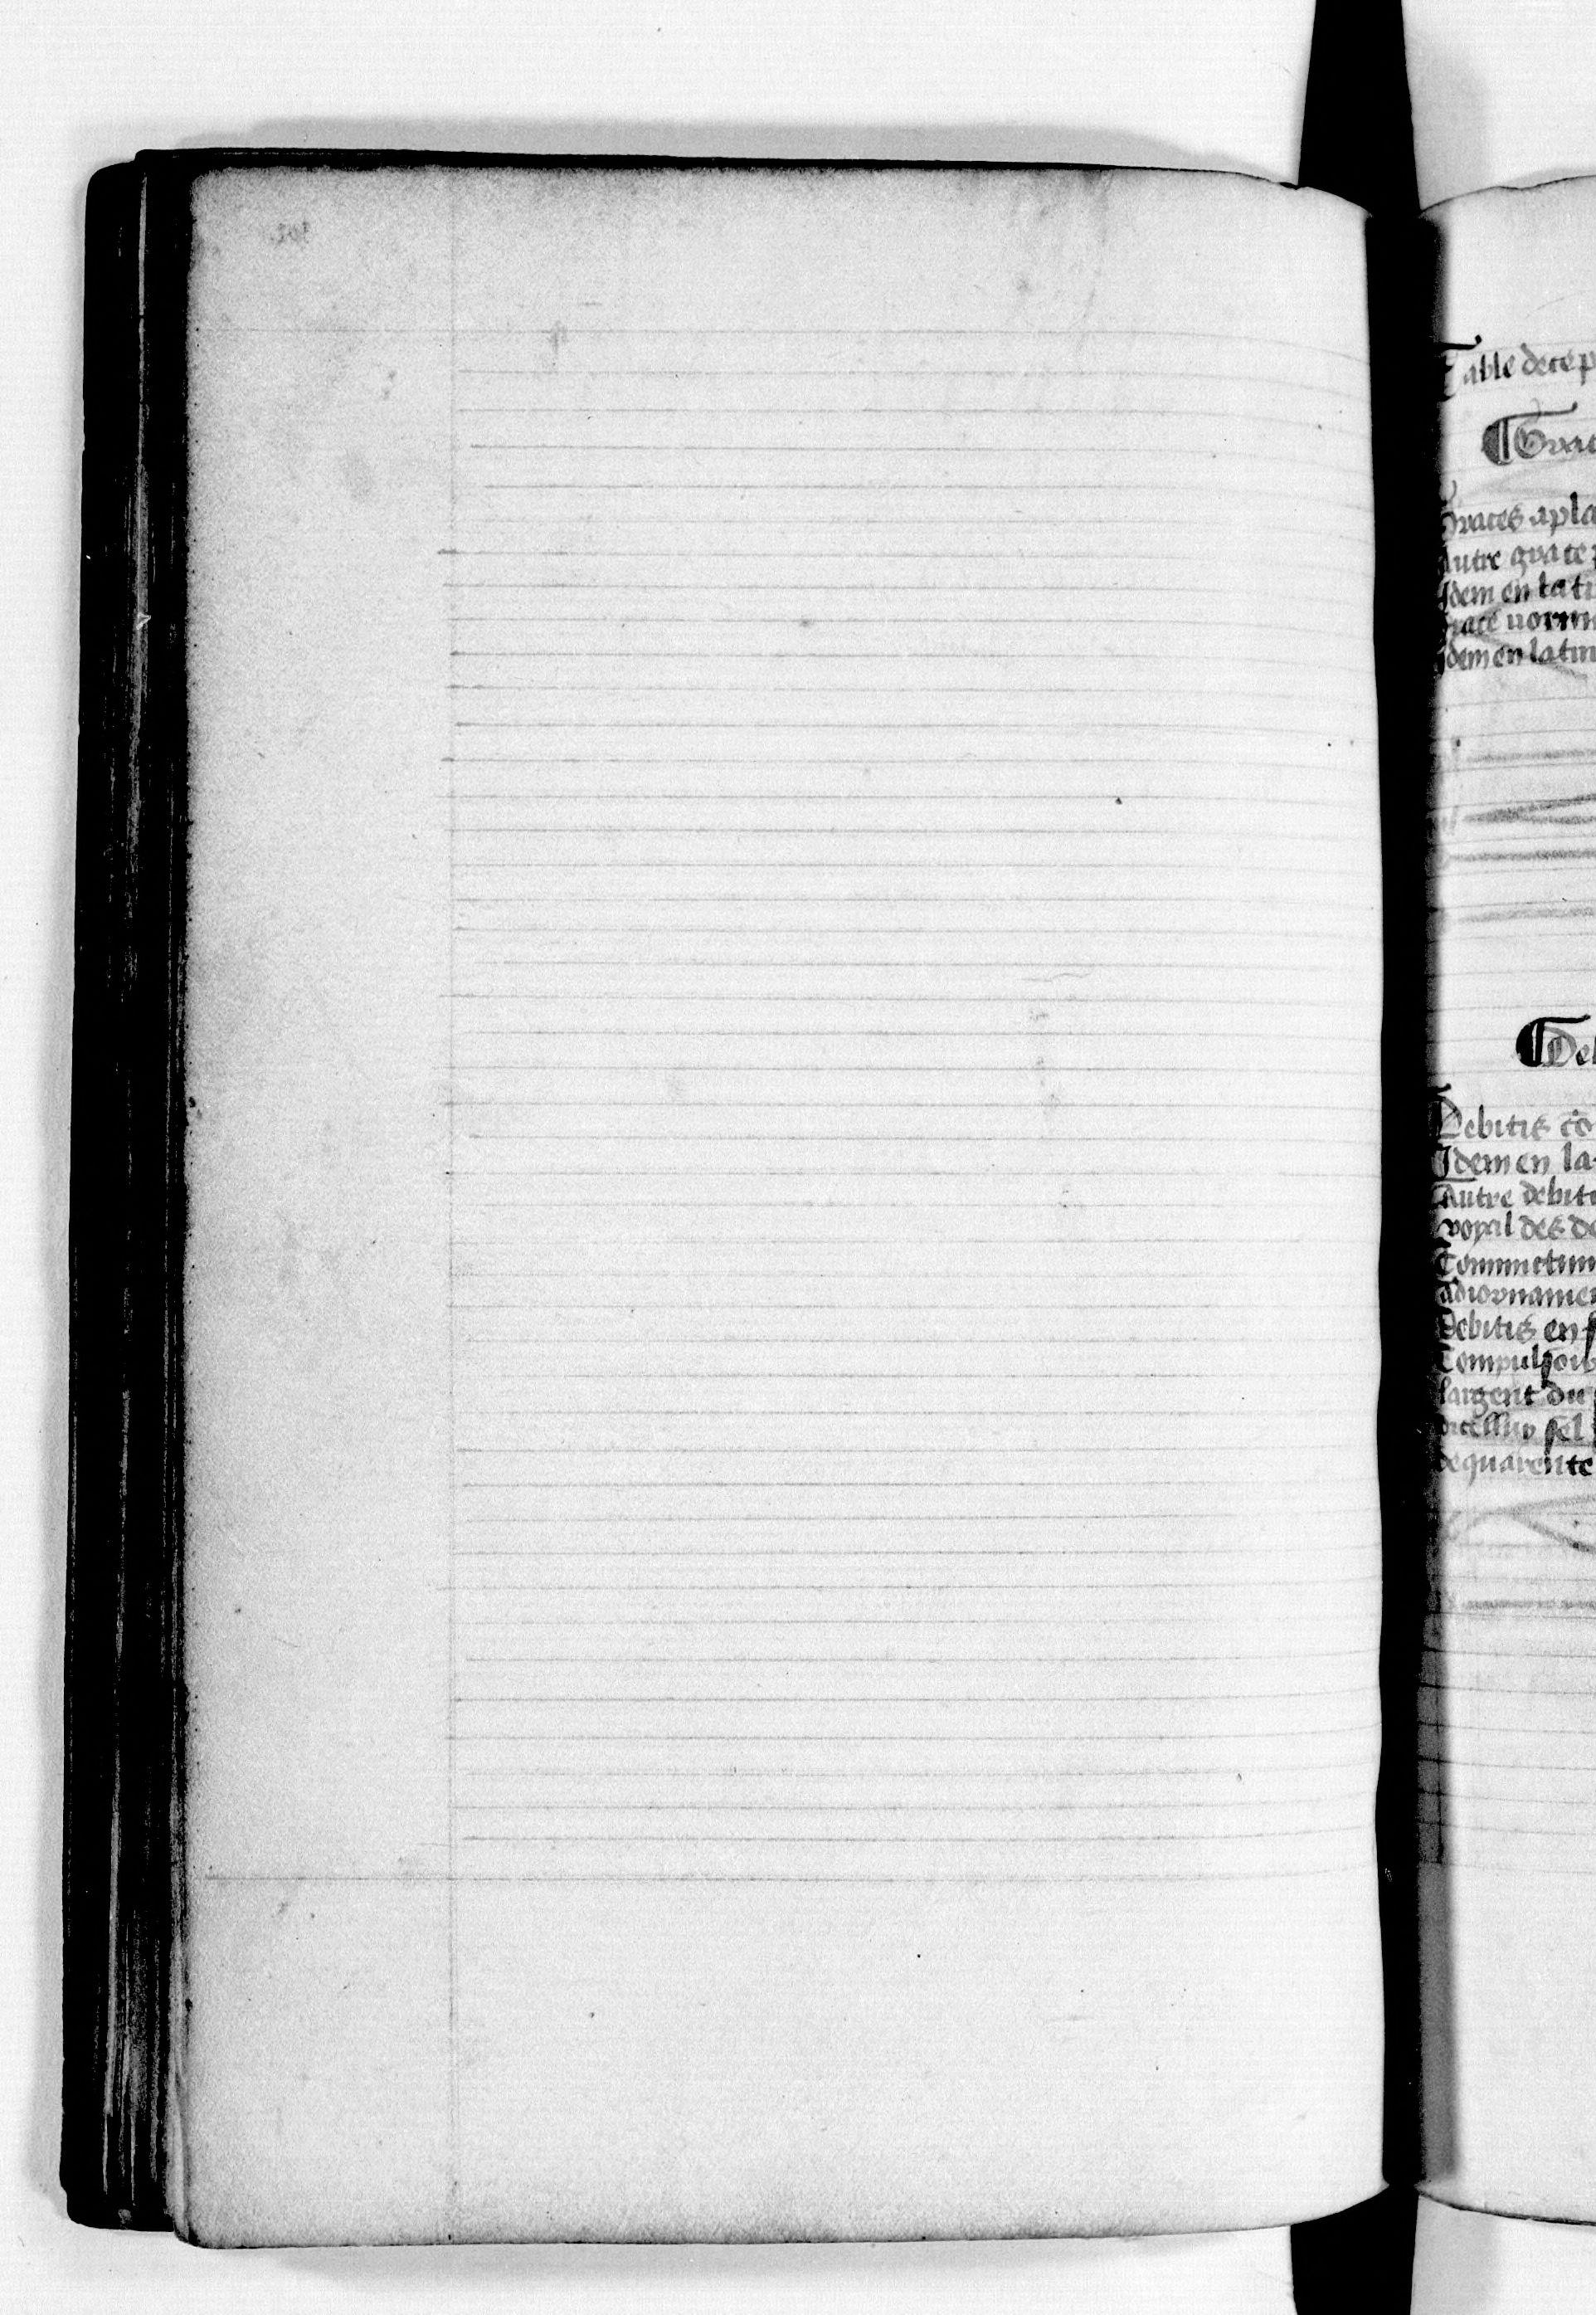 Table de ce p
Grac
Graces a pla
Autre grace
Idem en lati
Grace norm
Idem en latin
Deb
Debitis co
Idem en la
Autre debit
royal des de
Committim
adiornamen
Debitis en f
Compulsoir
largent du
dicelluy sel
de quarente